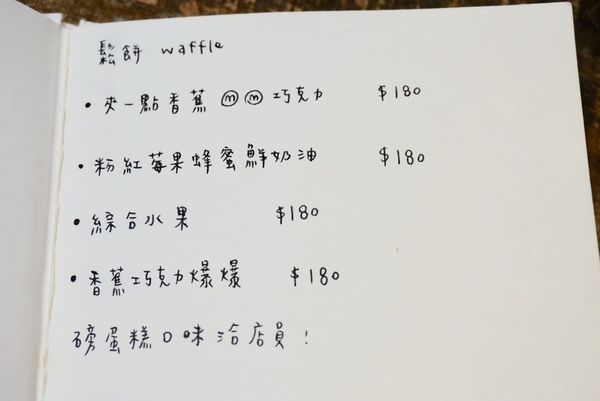 鬆餅 waffle
• 夾一點香蕉 ⓜⓜ 巧克力 $180
• 粉紅莓果蜂蜜鮮奶油 $180
• 綜合水果 $180
• 香蕉巧克力爆爆 $180
磅蛋糕口味洽店員！